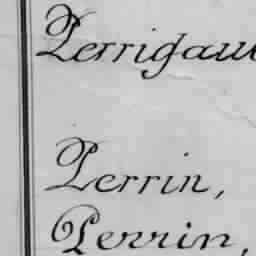 Perrigau
Perrin,
Perrin,